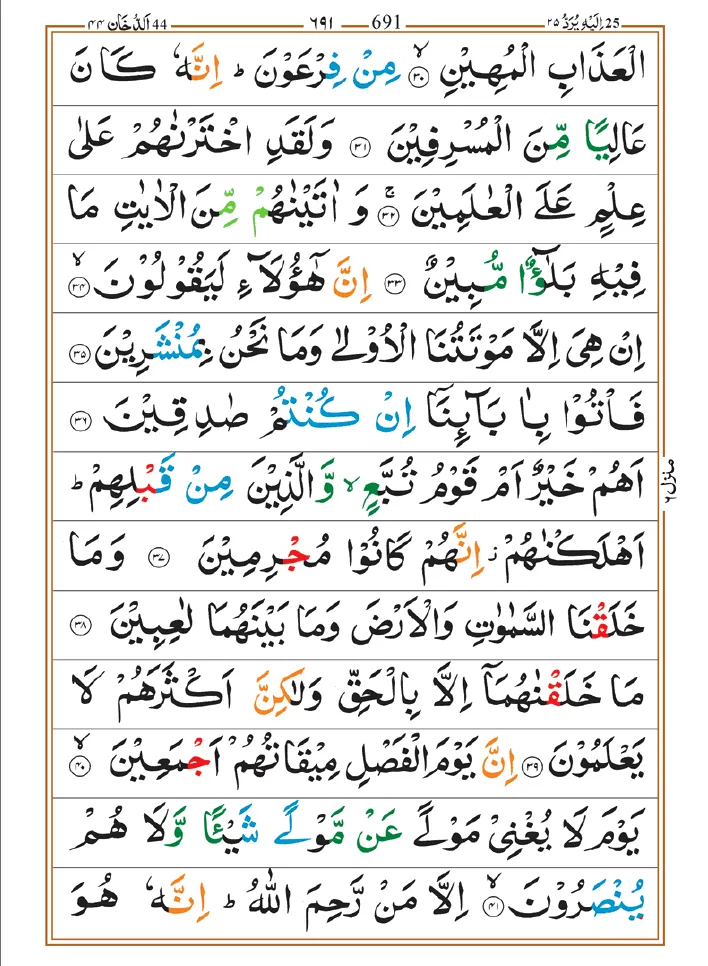 اِلَيْهِ يُرَدُّ ٢٥ 25 691 ٦٩١ اَلدُّخَان ٤٤ 44
الْعَذَابِ الْمُهِيْنِ ۙ﴿٣٠﴾ مِنْ فِرْعَوْنَ ؕ اِنَّهٗ كَانَ
عَالِيًا مِّنَ الْمُسْرِفِيْنَ ﴿٣١﴾ وَلَقَدِ اخْتَرْنٰهُمْ عَلٰى
عِلْمٍ عَلَى الْعٰلَمِيْنَ ۚ﴿٣٢﴾ وَ اٰتَيْنٰهُمْ مِّنَ الْاٰيٰتِ مَا
فِيْهِ بَلٰٓؤٌا مُّبِيْنٌ ﴿٣٣﴾ اِنَّ هٰٓؤُلَآءِ لَيَقُوْلُوْنَ ۙ﴿٣٤﴾
اِنْ هِىَ اِلَّا مَوْتَتُنَا الْاُوْلٰى وَمَا نَحْنُ بِمُنْشَرِيْنَ ﴿٣٥﴾
فَاْتُوْا بِاٰبَآئِنَاۤ اِنْ كُنْتُمْ صٰدِقِيْنَ ﴿٣٦﴾
اَهُمْ خَيْرٌ اَمْ قَوْمُ تُبَّعٍ ۙ وَّالَّذِيْنَ مِنْ قَبْلِهِمْ ؕ
اَهْلَكْنٰهُمْ ز اِنَّهُمْ كَانُوْا مُجْرِمِيْنَ ﴿٣٧﴾ وَمَا
خَلَقْنَا السَّمٰوٰتِ وَالْاَرْضَ وَمَا بَيْنَهُمَا لٰعِبِيْنَ ﴿٣٨﴾
مَا خَلَقْنٰهُمَاۤ اِلَّا بِالْحَقِّ وَلٰكِنَّ اَكْثَرَهُمْ لَا
يَعْلَمُوْنَ ﴿٣٩﴾ اِنَّ يَوْمَ الْفَصْلِ مِيْقَاتُهُمْ اَجْمَعِيْنَ ۙ﴿٤٠﴾
يَوْمَ لَا يُغْنِىْ مَوْلًى عَنْ مَّوْلًى شَيْئًا وَّلَا هُمْ
يُنْصَرُوْنَ ۙ﴿٤١﴾ اِلَّا مَنْ رَّحِمَ اللّٰهُ ؕ اِنَّهٗ هُوَ
منزل ٦